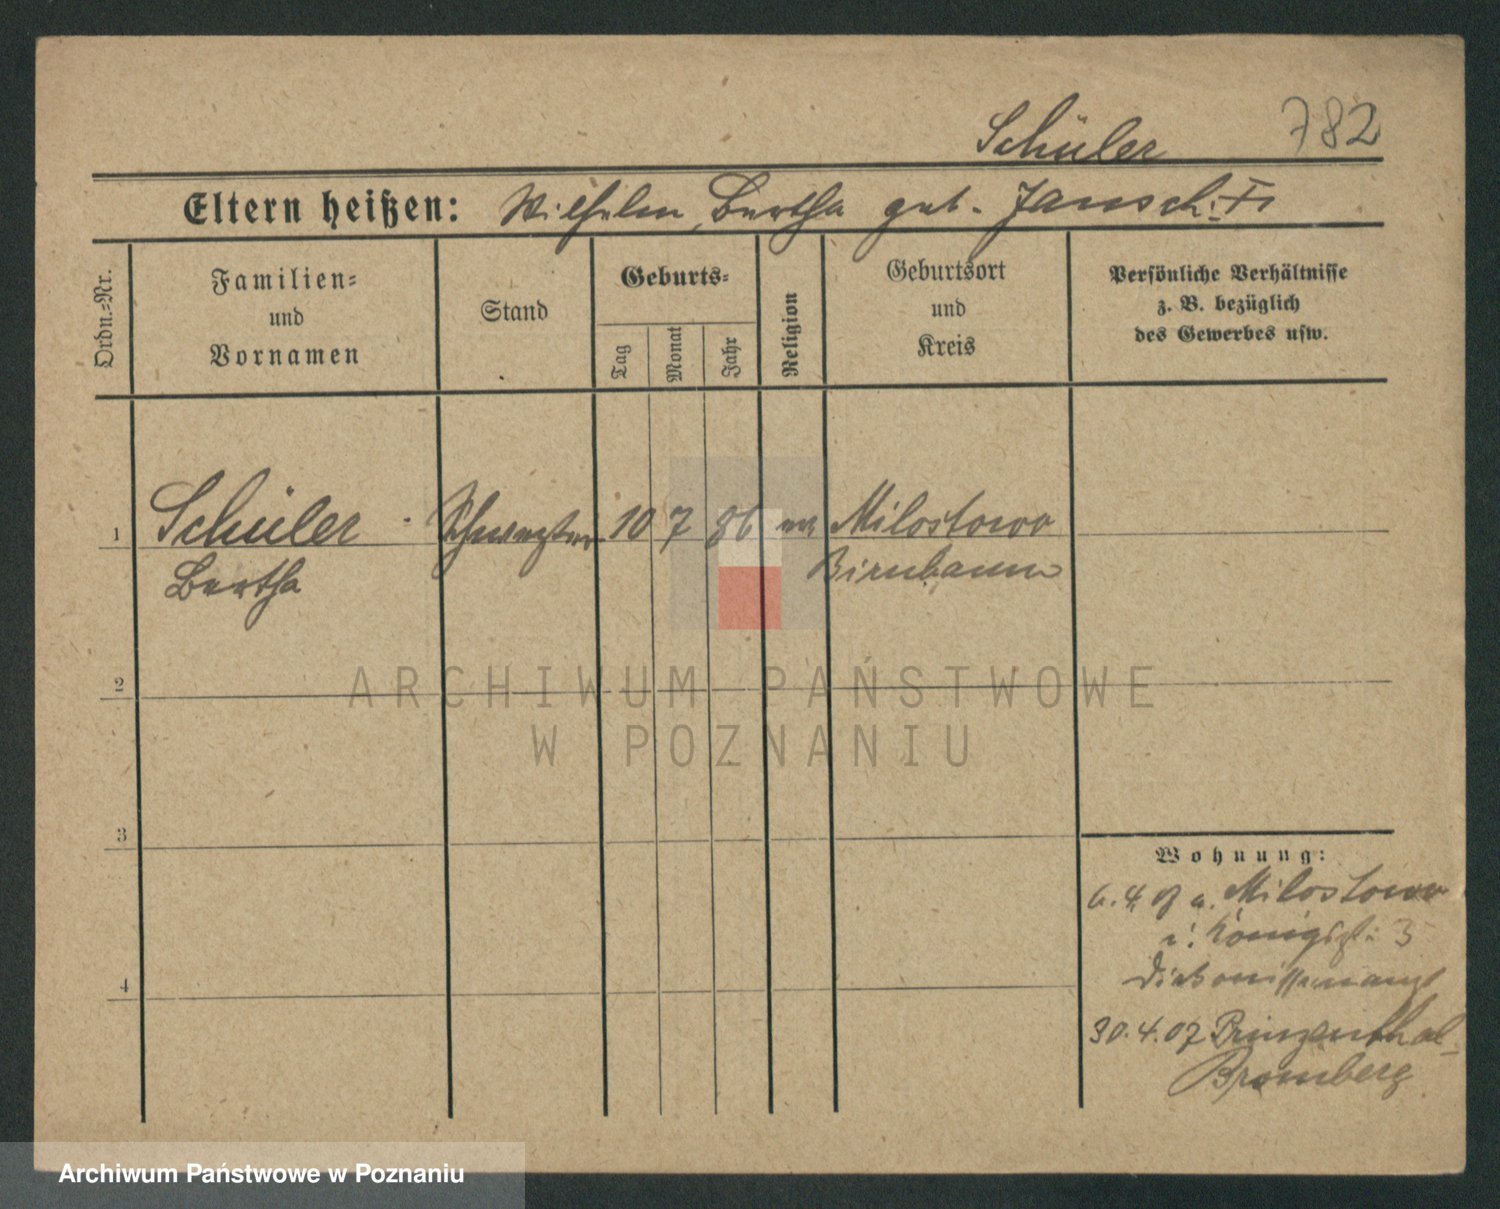 Schüler 782
Eltern heißen: Wilhelm, Bertha geb. Jansch
Ordn.=Nr.
Familien=
und
Vornamen
Stand
Geburts=
Tag
Monat
Jahr
Religion
Geburtsort
und
Kreis
Persönliche Verhältnisse
z. B. bezüglich
des Gewerbes usw.
1 Schüler Schwester 10 7 86 Milostowo
Bertha Birnbaum
2
ARCHIWUM PAŃSTWOWE
W POZNANIU
3
Wohnung:
6.4.07 a. Milostowo
i. Königstr. 3
Diakonissenanst
4
30.4.07 Prinzenthal-
Bromberg
Archiwum Państwowe w Poznaniu